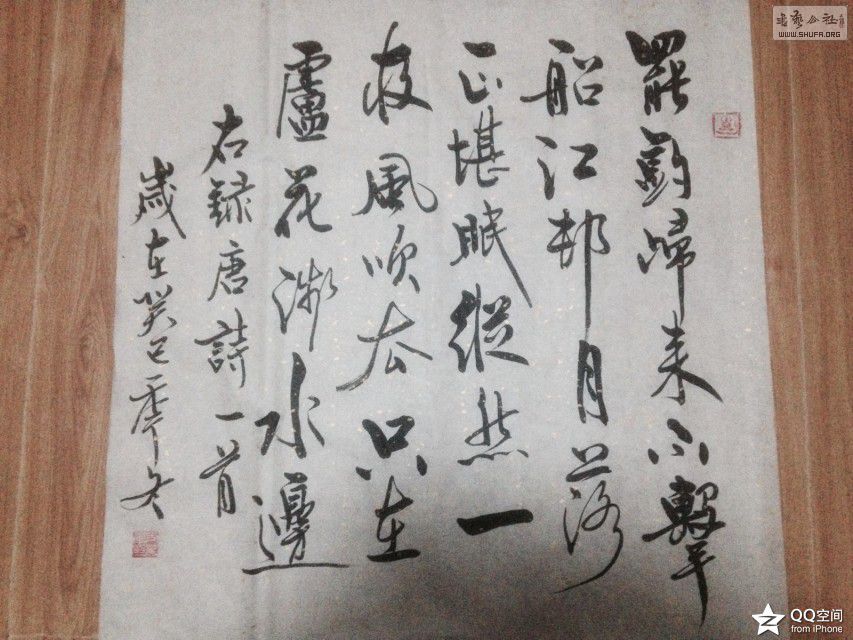 罷釣歸来不擊
船江邨月落
正堪眠縱然一
夜風吹去只在
盧花淺水邊
右録唐詩一首
歲在癸巳季冬
書藝公社
WWW.SHUFA.ORG
QQ空间
from iPhone